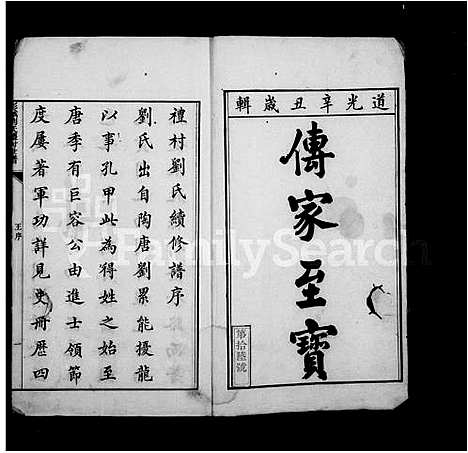 道光辛丑歲輯
傳家至寶
第拾陸號
禮村劉氏續修譜序
劉氏出自陶唐劉累能擾龍
以事孔甲此為得姓之始至
唐季有巨容公由進士領節
度屢著軍功詳見史冊歴四
王序
FamilySearch